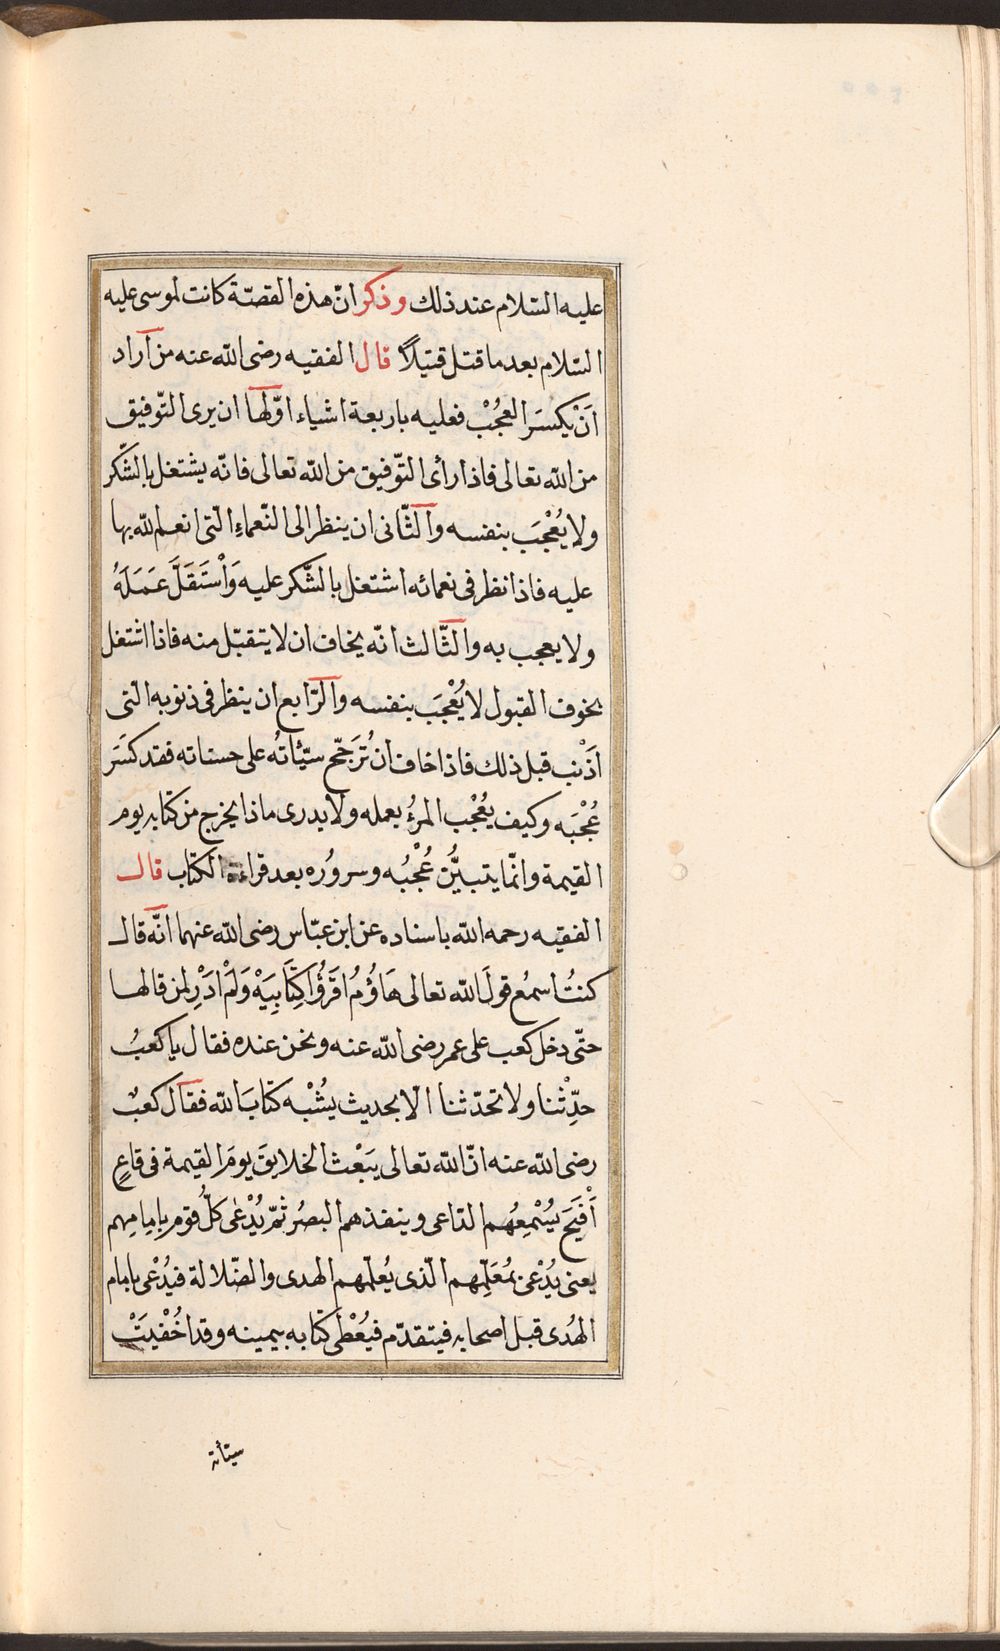 عليه السّلام عند ذلك وذكر انّ هذه القصّة كانت لموسى عليه
السّلام بعد ما قتل قتيلاً قال الفقيه رضى اللّه عنه من آراد
اَنْ يكسَر العجُبْ فعليه باربعة اشياء اوّلها ان يرى التّوفيق
من اللّه تعالى فاذا رأى التّوفيق من اللّه تعالى فانّه يشتغل بالشّكر
ولا يُعْجَب بنفسه والثّانى ان ينظر الى النّعماءِ الّتى انعم اللّه بها
عليه فاذا نظر فى نعمائه اشتغل بالشّكر عليه وَاْسْتَقَلَّ عَمَلَهُ
ولا يعجب به والثّالث انّه يخاف ان لا يتقبّل منه فاذا اشتغل
بخوف القبول لا يُعْجَب بنفسه والرّابع ان ينظر فى ذنوبه الّتى
اَذْنب قبل ذلك فاذا خاف اَنْ تُرَجّح سيّئاتُه على حسناته فقد كَسَر
عُجْبَه وكيف يعُجْب المرءُ بعمله ولا يدرى ماذا يخرج من كتابه يوم
القيمة وانّما يتبيَّن عُجْبُه وسروُره بعد قراءة الكتاب قال
الفقيه رحمه اللّه باسناده عن ابن عبّاس رضى اللّه عنهما انّه قال
كنتُ اسمع قولَ اللّه تعالى هَاؤُمُ اقرَؤُا كِتَابِيَهْ وَلَمْ اَدْرِ لمن قالها
حتّى دخل كعب على عمر رضى اللّه عنه ونحن عنده فقال يا كعبُ
حدِّثْنا ولا تحدّثنا الّا بحديث يشُبْه كتابَ اللّه فقال كعبٌ
رضى اللّه عنه انّ اللّه تعالى يَبَعْث الخلايقَ يومَ القيمة فى قاعٍ
اَفْيَحَ يسُمْعِهُم الدّاعى وينفذهم البصُر ثمّ يُدْعٰى كلُّ قوم بامِامِهم
يعنى يُدْعٰى بمُعَلِّمِهم الّذى يُعلّمهم الهدى والضّلالة فيُدْعٰى بامام
الهُدى قبل اصحابه فيتقدّم فيُعْطٰى كتابه بيمينه وقد اُخْفيَتْ
سيّأته